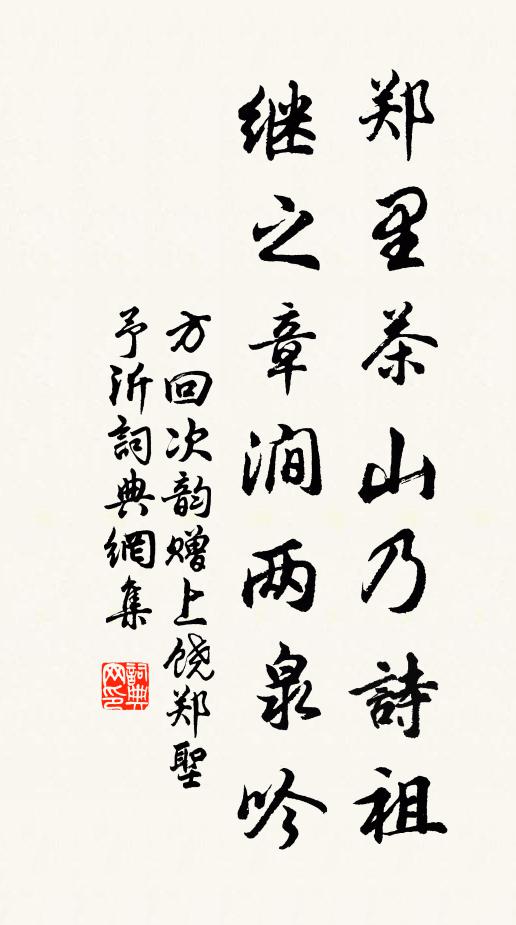 郑里茶山乃詩祖
继之章涧两泉吟
方回次韵赠上饶郑聖
予沂詞典網集
詞典网印